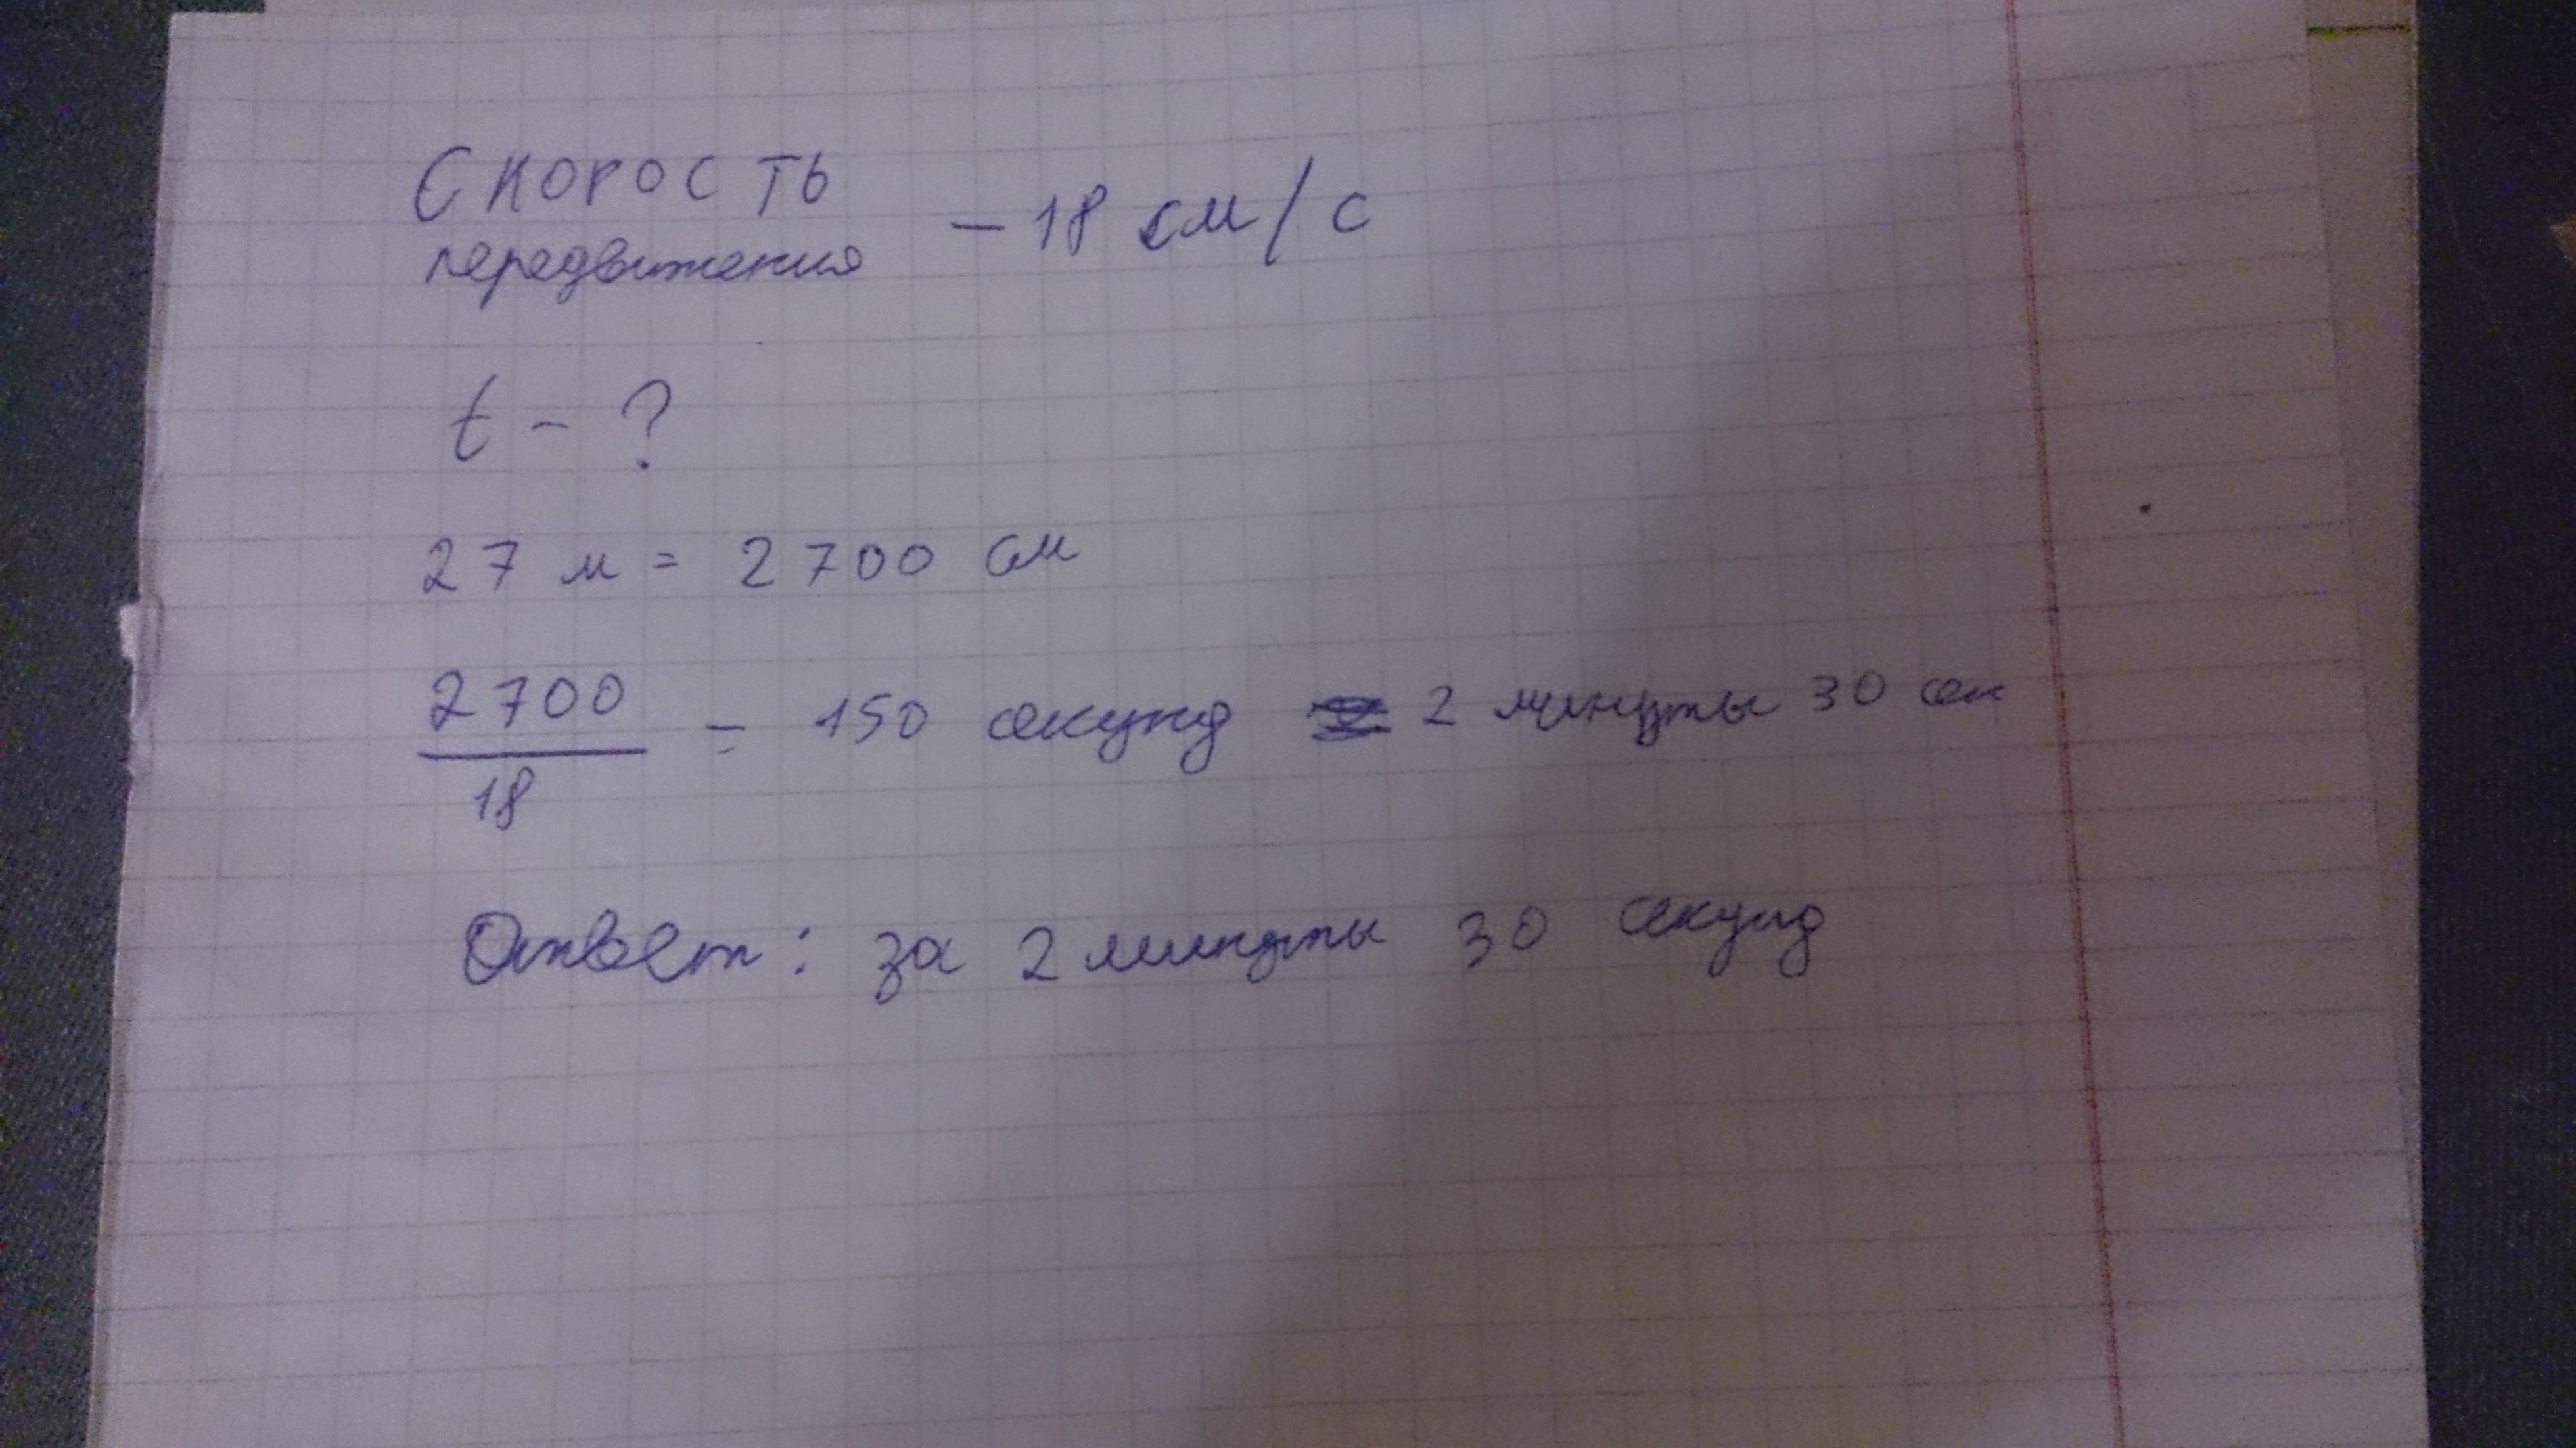 Скорость
передвижения – 18 см/с
t – ?
27 м = 2700 см
2700
18
= 150 секунд 2 минуты 30 сек
Ответ: за 2 минуты 30 секунд